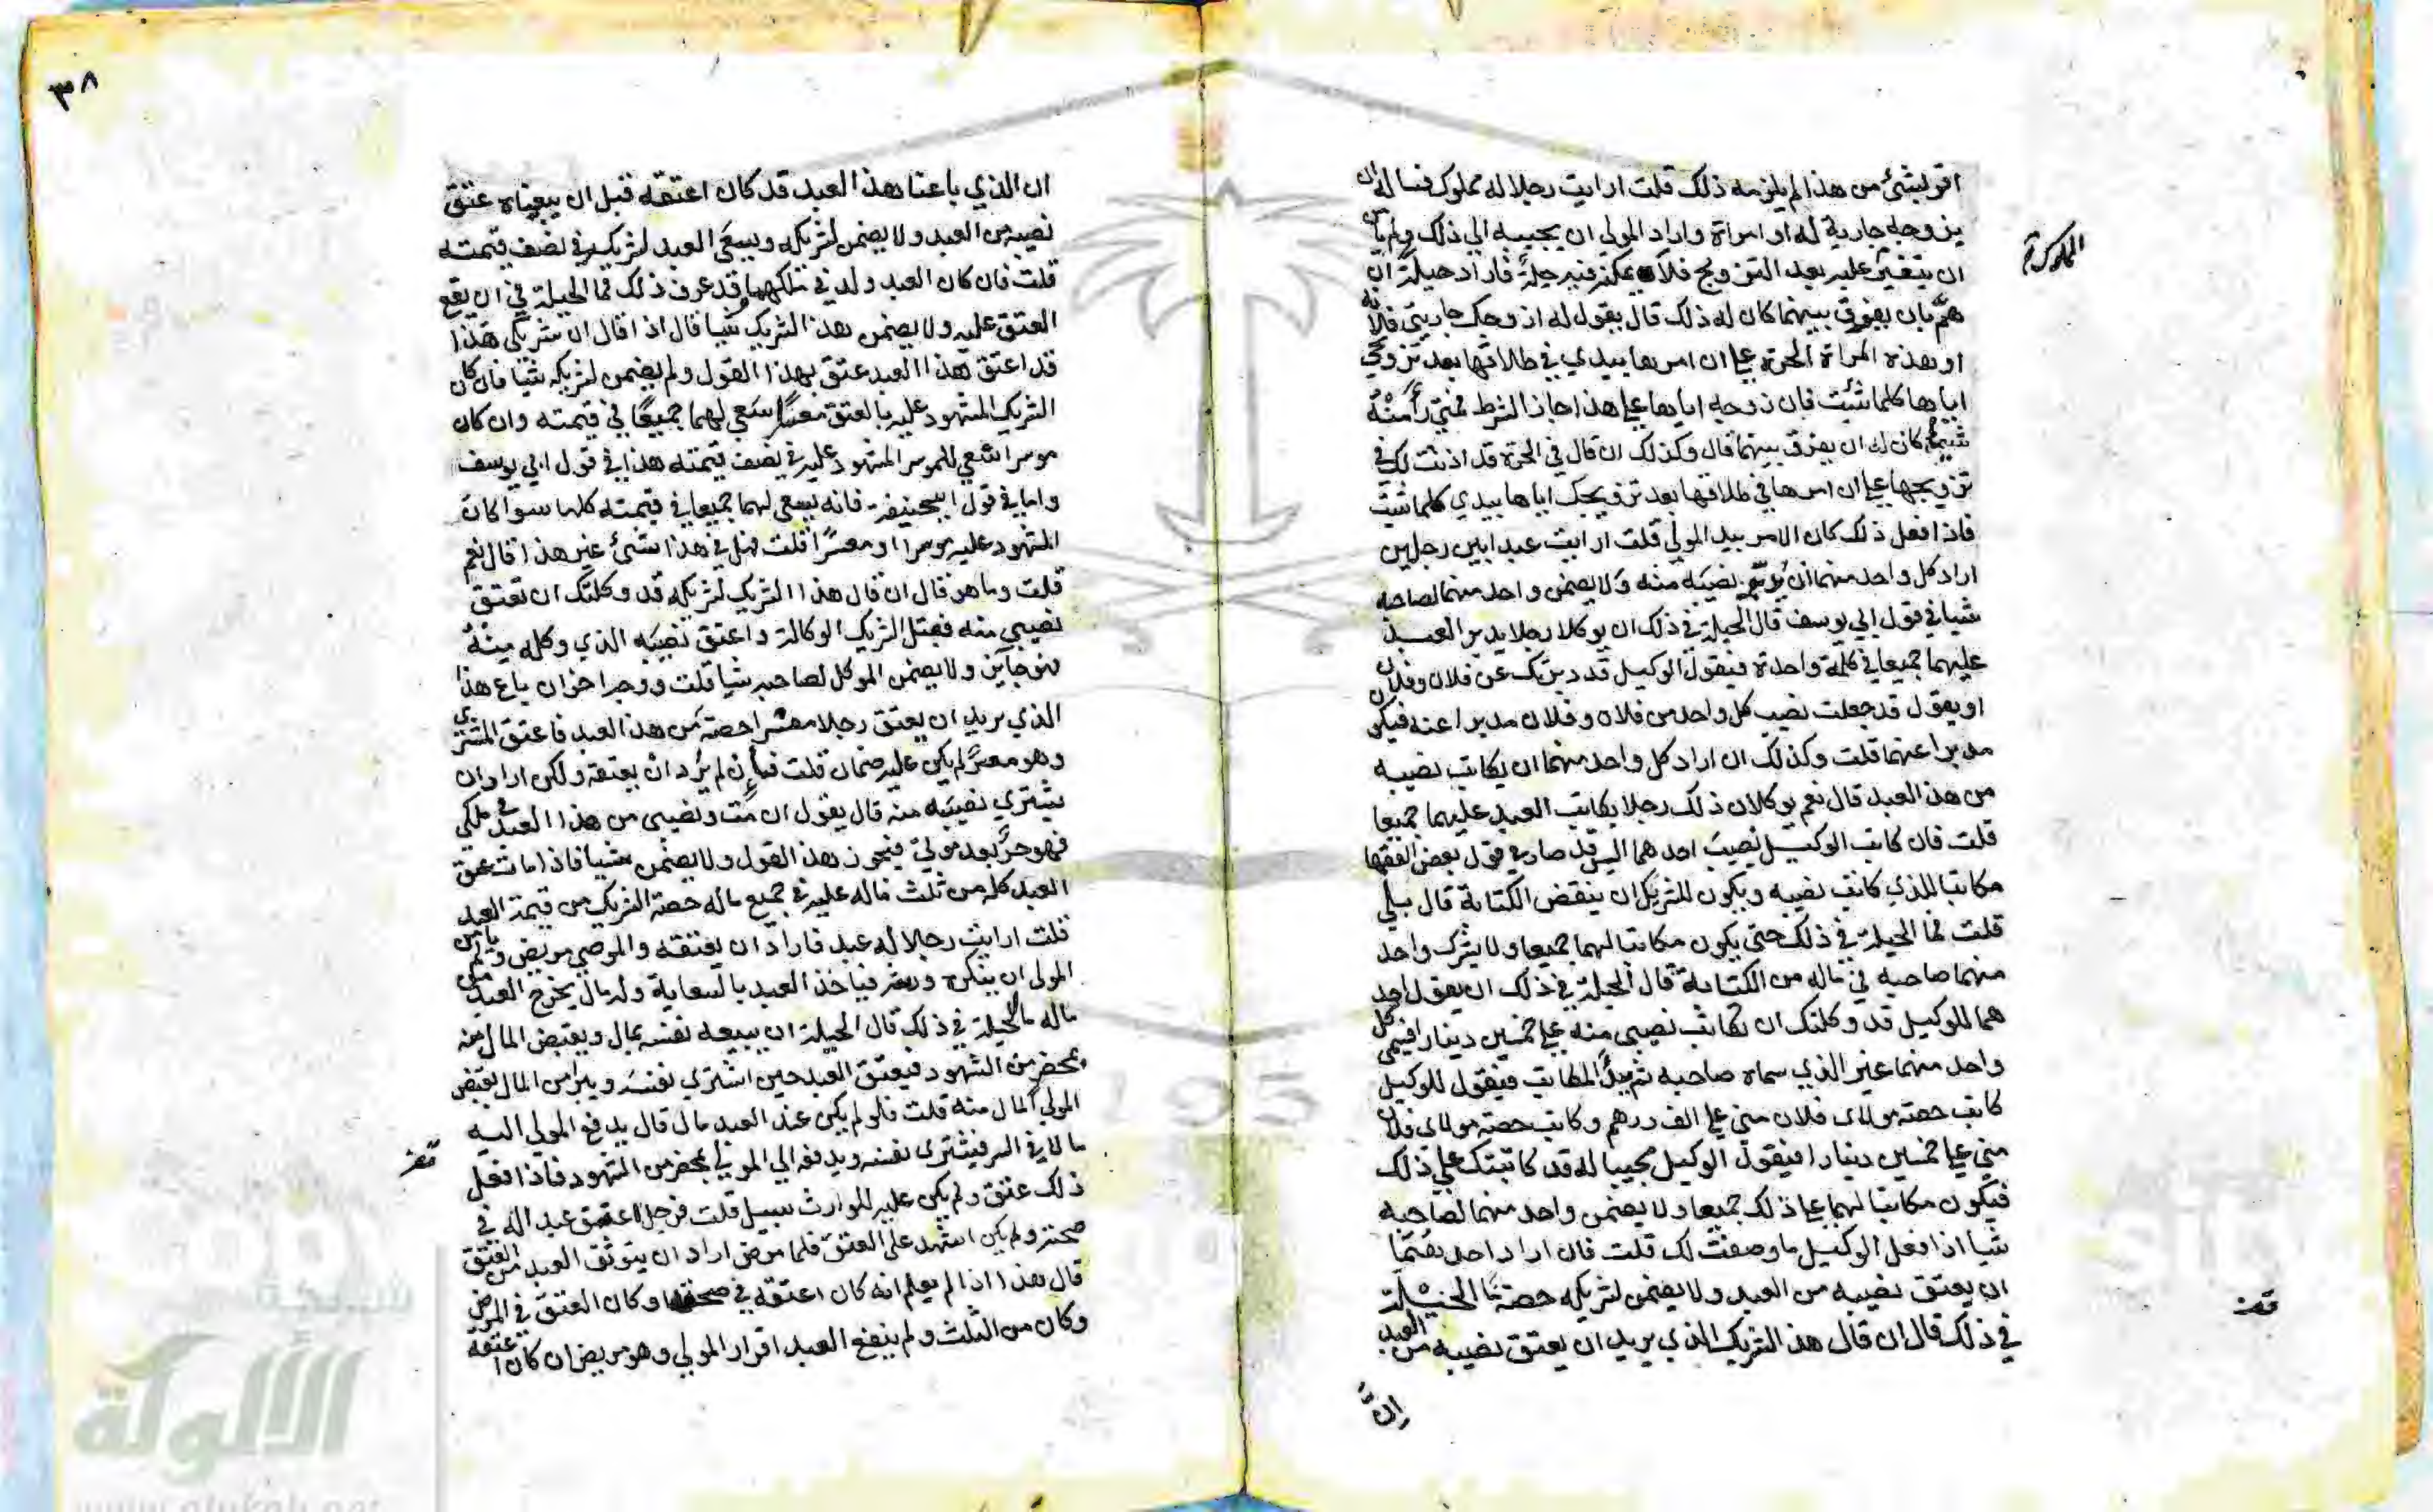 اقر بشئ من هذا لم يلزمه ذلك قلت ارايت رجلا له مملوك فساله ان
يزوجه جارية له او امراة واراد المولي ان يجيبه الي ذلك ولم يامن
ان يتغير عليه بعد التزويج فلا يمكنه فيه حيلة فاراد حيلة ان
هم بان يفرق بينهما كان له ذلك قال يقول له ازوجك جاريتي فلانه
او هذه المراة الحرة علي ان امرها بيدي في طلاقها بعد تزوجي
اياها كلما شئت فان زوجه اياها علي هذا جاز الشرط فمتي رأ منه
شيئا كان له ان يفرق بينهما قال وكذلك ان قال في الحرة قد اذنت لك في
تزويجها علي ان امرها في طلاقها بعد تزويجك اياها بيدي كلما شيت
فاذا فعل ذلك كان الامر بيد المولي قلت ارايت عبدا بين رجلين
اراد كل واحد منهما ان يدبر نصيبه منه ولا يضمن واحد منهما لصاحبه
شيا في قول ابي يوسف قال الحيلة في ذلك ان يوكلا رجلا يدبر العبد
عليهما جميعا في كلمة واحدة فيقول الوكيل قد دبرتك عن فلان وفلان
او يقول قد جعلت نصيب كل واحد من فلان وفلان مدبرا عنه فيكون
مدبرا عنهما قلت وكذلك ان اراد كل واحد منهما ان يكاتب نصيبه
من هذا العبد قال نعم يوكلان ذلك رجلا يكاتب العبد عليهما جميعا
قلت فان كاتب الوكيل نصيب احدهما اليس قد صار في قول بعض الفقها
مكاتبا للذي كاتب نصيبه ويكون للشريك ان ينقض الكتابة قال بلي
قلت فما الحيلة في ذلك حتي يكون مكاتبا لهما جميعا ولا يشرك واحد
منهما صاحبه في ماله من الكتابة قال الحيلة في ذلك ان يقول احد
هما للوكيل قد وكلتك ان تكاتب نصيبي منه علي خمسين دينارا فيسمي كل
واحد منهما غير الذي سماه صاحبه ثم يبدأ المكاتب فيقول للوكيل
كاتب حصة مولاي فلان مني علي الف درهم وكاتب حصة مولاي فلان
مني علي خمسين دينارا فيقول الوكيل مجيبا له قد كاتبتك علي ذلك
فيكون مكاتبا لهما علي ذلك جميعا ولا يضمن واحد منهما لصاحبه
شيا اذا فعل الوكيل ما وصفت لك قلت فان اراد احدهما
ان يعتق نصيبه من العبد ولا يضمن لشريكه حصته ما الحيلة
في ذلك قال ان قال هذا الشريك الذي يريد ان يعتق نصيبه من العبد
ان
المملوكة
٣٨
ان الذي باعنا هذا العبد قد كان اعتقه قبل ان يبيعناه عتق
نصيبه من العبد ولا يضمن لشريكه ويسعي العبد لشريكه في نصف قيمته
قلت فان كان العبد ولد في ملكهما وقد عرف ذلك فما الحيلة في ان يقع
العتق عليه ولا يضمن هذا الشريك شيا قال اذا قال ان شريكي هذا
قد اعتق هذا العبد عتق بهذا القول ولم يضمن لشريكه شيا فان كان
الشريك المشهود عليه بالعتق معسرا سعي لهما جميعا في قيمته وان كان
موسرا سعي للموسر المشهود عليه في نصف قيمته هذا في قول ابي يوسف
واما في قول ابي حنيفة فانه يسعي لهما جميعا في قيمته كلها سوا كان
المشهود عليه موسرا او معسرا قلت فهل في هذا شئ غير هذا قال نعم
قلت وما هو قال ان قال هذا الشريك لشريكه قد وكلتك ان تعتق
نصيبي منه فقبل الشريك الوكالة واعتق نصيبه الذي وكله منه
فهو جايز ولا يضمن الموكل لصاحبه شيا قلت ووجه اخر ان باع هذا
الذي يريد ان يعتق رجلا معسرا حصته من هذا العبد فاعتق المشتري
وهو معسر لم يكن عليه ضمان قلت فان لم يرد ان يعتقه ولكن اراد ان
يشتري نصيبه منه قال يقول ان مت ونصيبي من هذا العبد في ملكي
فهو حر بعد موتي فيجوز هذا القول ولا يضمن شيا فاذا مات عتق
العبد كله من ثلث ماله عليه في جميع ماله حصة الشريك من قيمة العبد
قلت ارايت رجلا له عبد فاراد ان يعتقه والموصي مريض ولم يامن
المولي ان ينكره ورثته فياخذ العبد بالسعاية وله مال يخرج العبد من
ماله ما الحيلة في ذلك قال الحيلة ان يبيعه نفسه بمال ويقبض المال منه
بمحضر من الشهود فيعتق العبد حين اشتري نفسه ويبرأ من المال بقبض
المولي المال منه قلت فلو لم يكن عند العبد مال قال يدفع المولي اليه
مالا في السر فيشتري نفسه ويدفعه الي المولي بمحضر من الشهود فاذا فعل
ذلك عتق ولم يكن عليه للوارث سبيل قلت فرجل اعتق عبدا له في
صحته ولم يكن اشهد علي العتق فلما مرض اراد ان يتوثق العبد من العتق
قال هذا اذا لم يعلم انه كان اعتقه في صحته وكان العتق في المرض
وكان من الثلث ولم ينفع العبد اقرار المولي وهو مريض ان كان اعتقه
شبكة
الألوكة
www.alukah.net